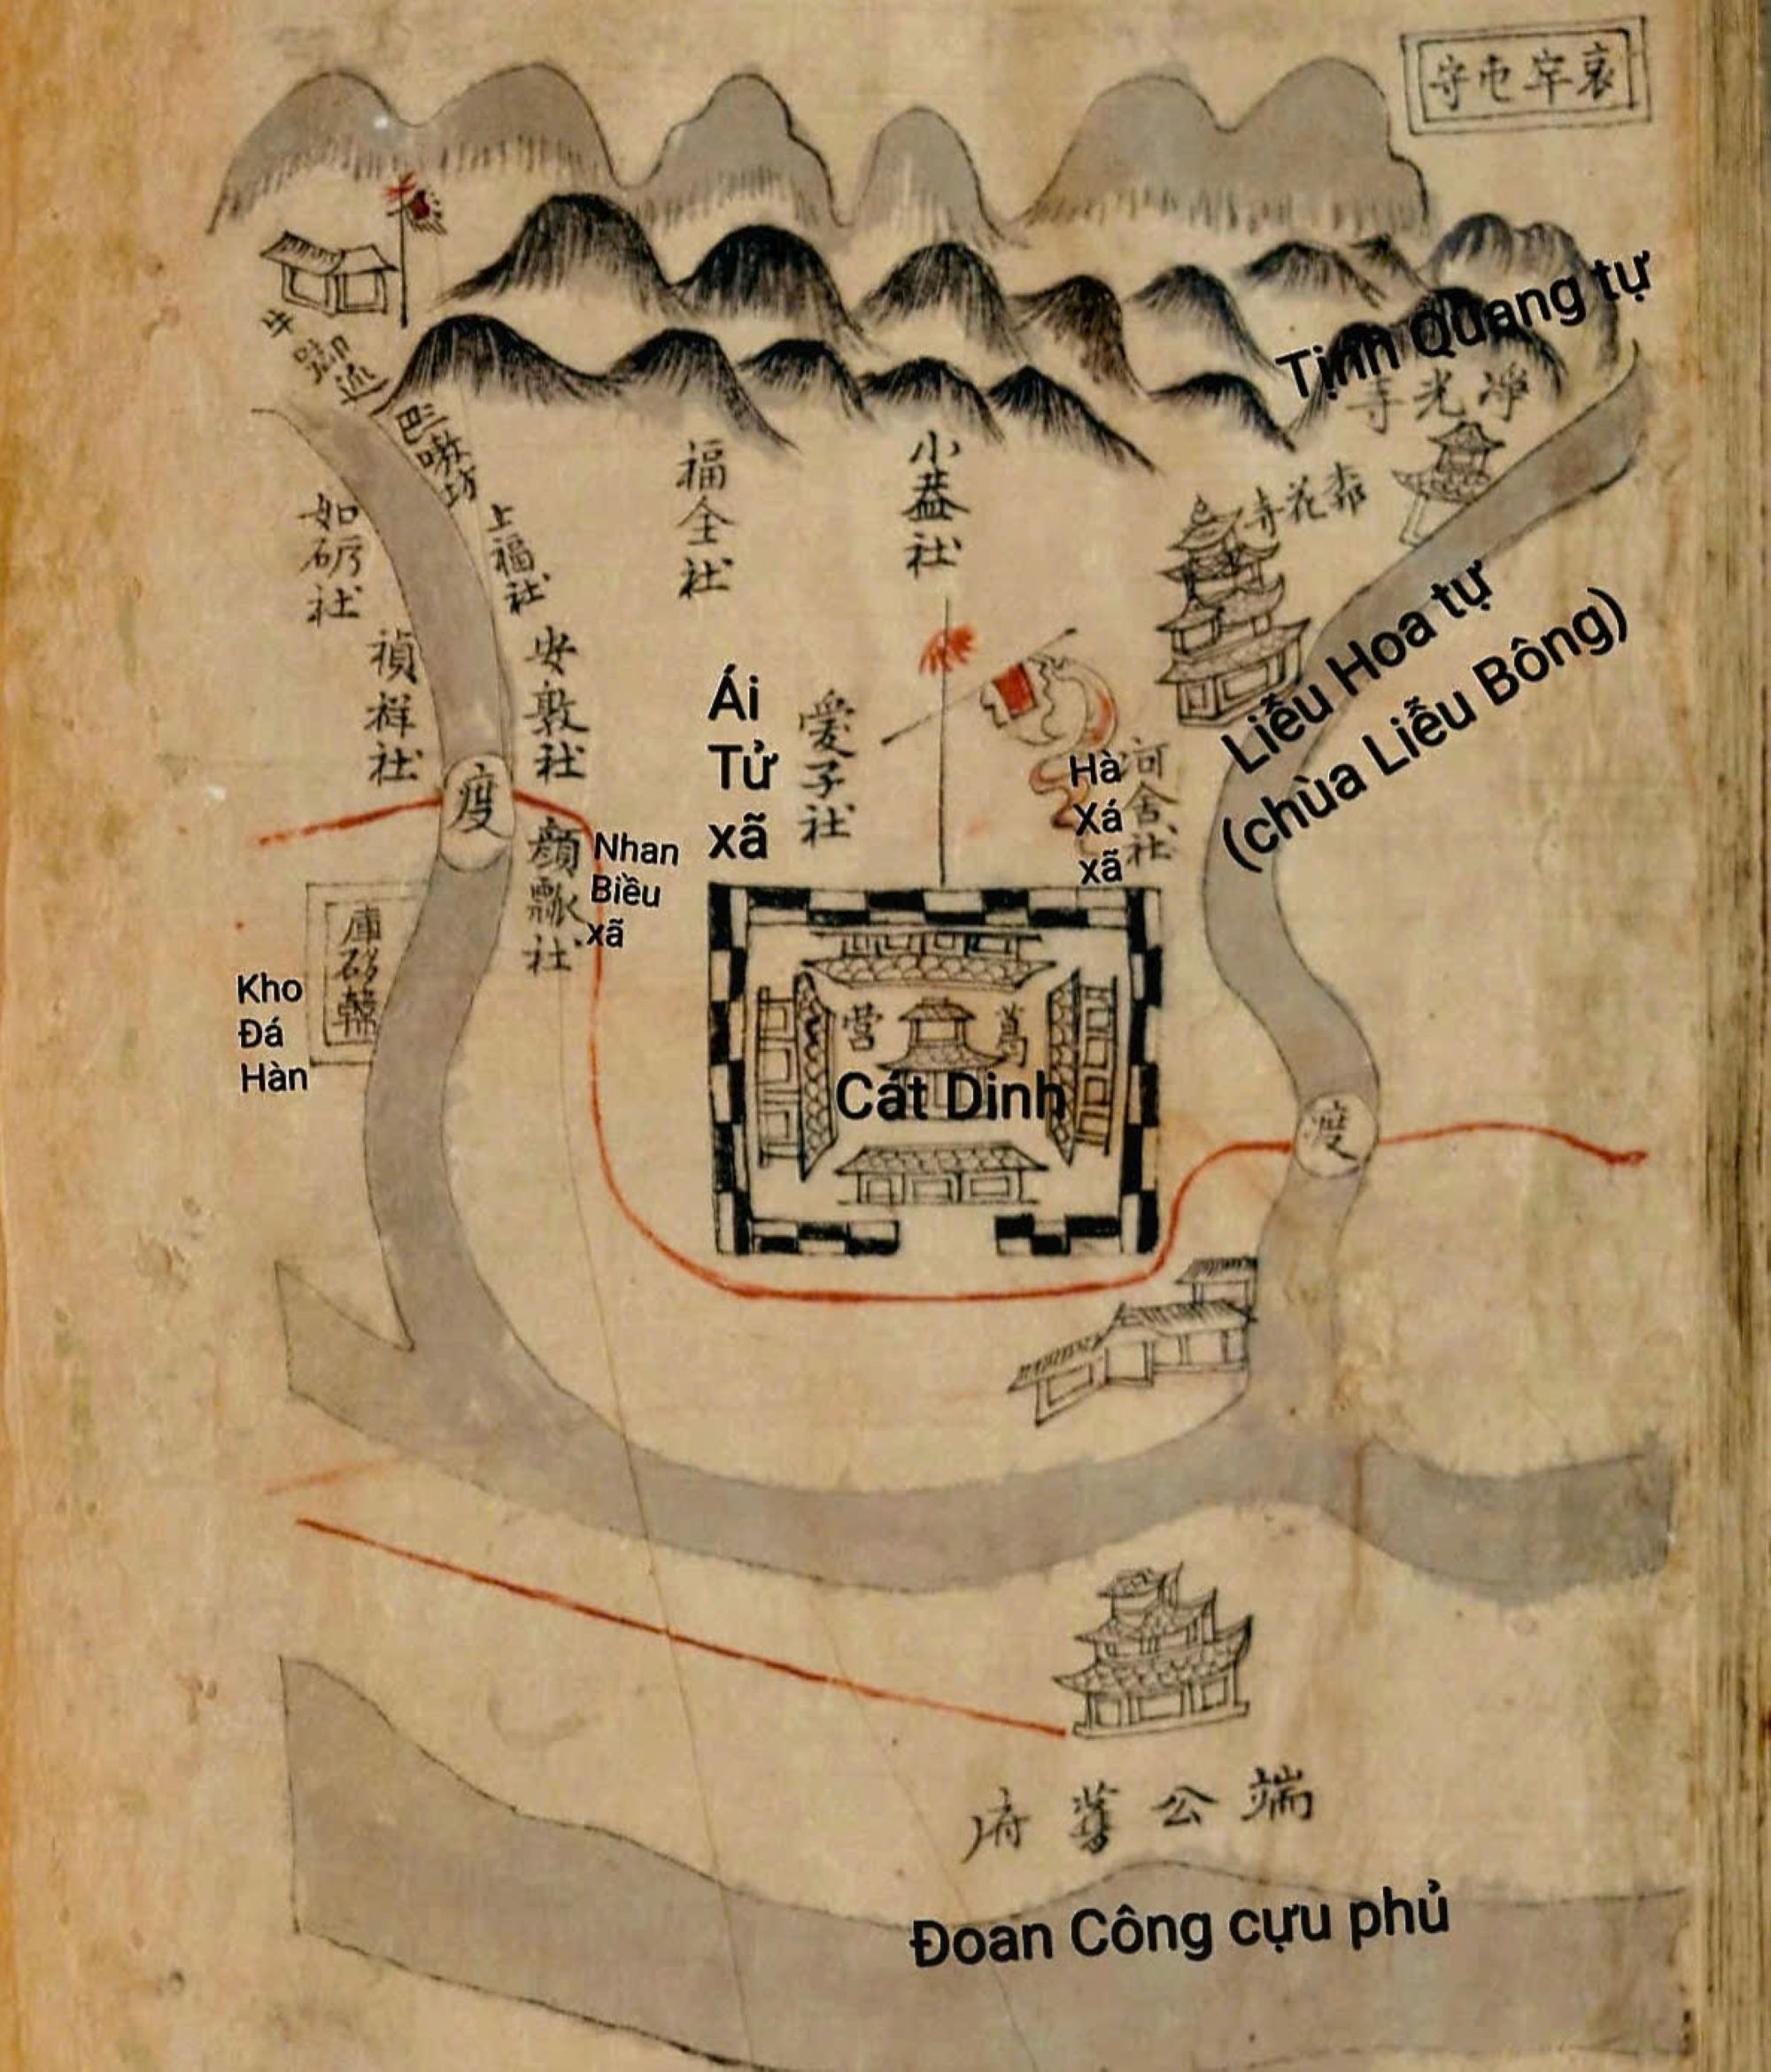 守屯牢哀
Tịnh Quang tự
寺光淨
寺花
福全社
小益社
上福社
安敦社
禎祥社
如社
Ái
Tử
xã
愛子社
Liễu Hoa tự
(chùa Liễu Bông)
Hà
Xá
xã
河舍社
渡
顔瓢社
Nhan
Biều
xã
庫
Kho
Đá
Hàn
营葛
Cát Dinh
渡
府舊公端
Đoan Công cựu phủ